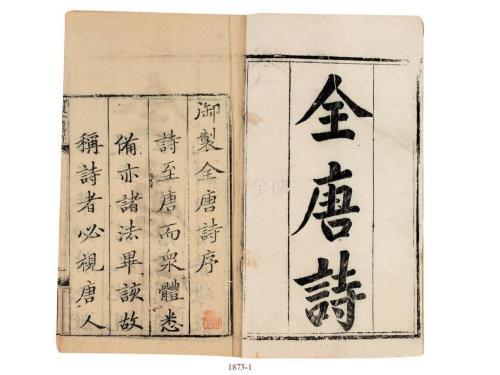 全唐詩
御製全唐詩序
詩至唐而衆體悉
備亦諸法畢該故
稱詩者必視唐人
1873-1